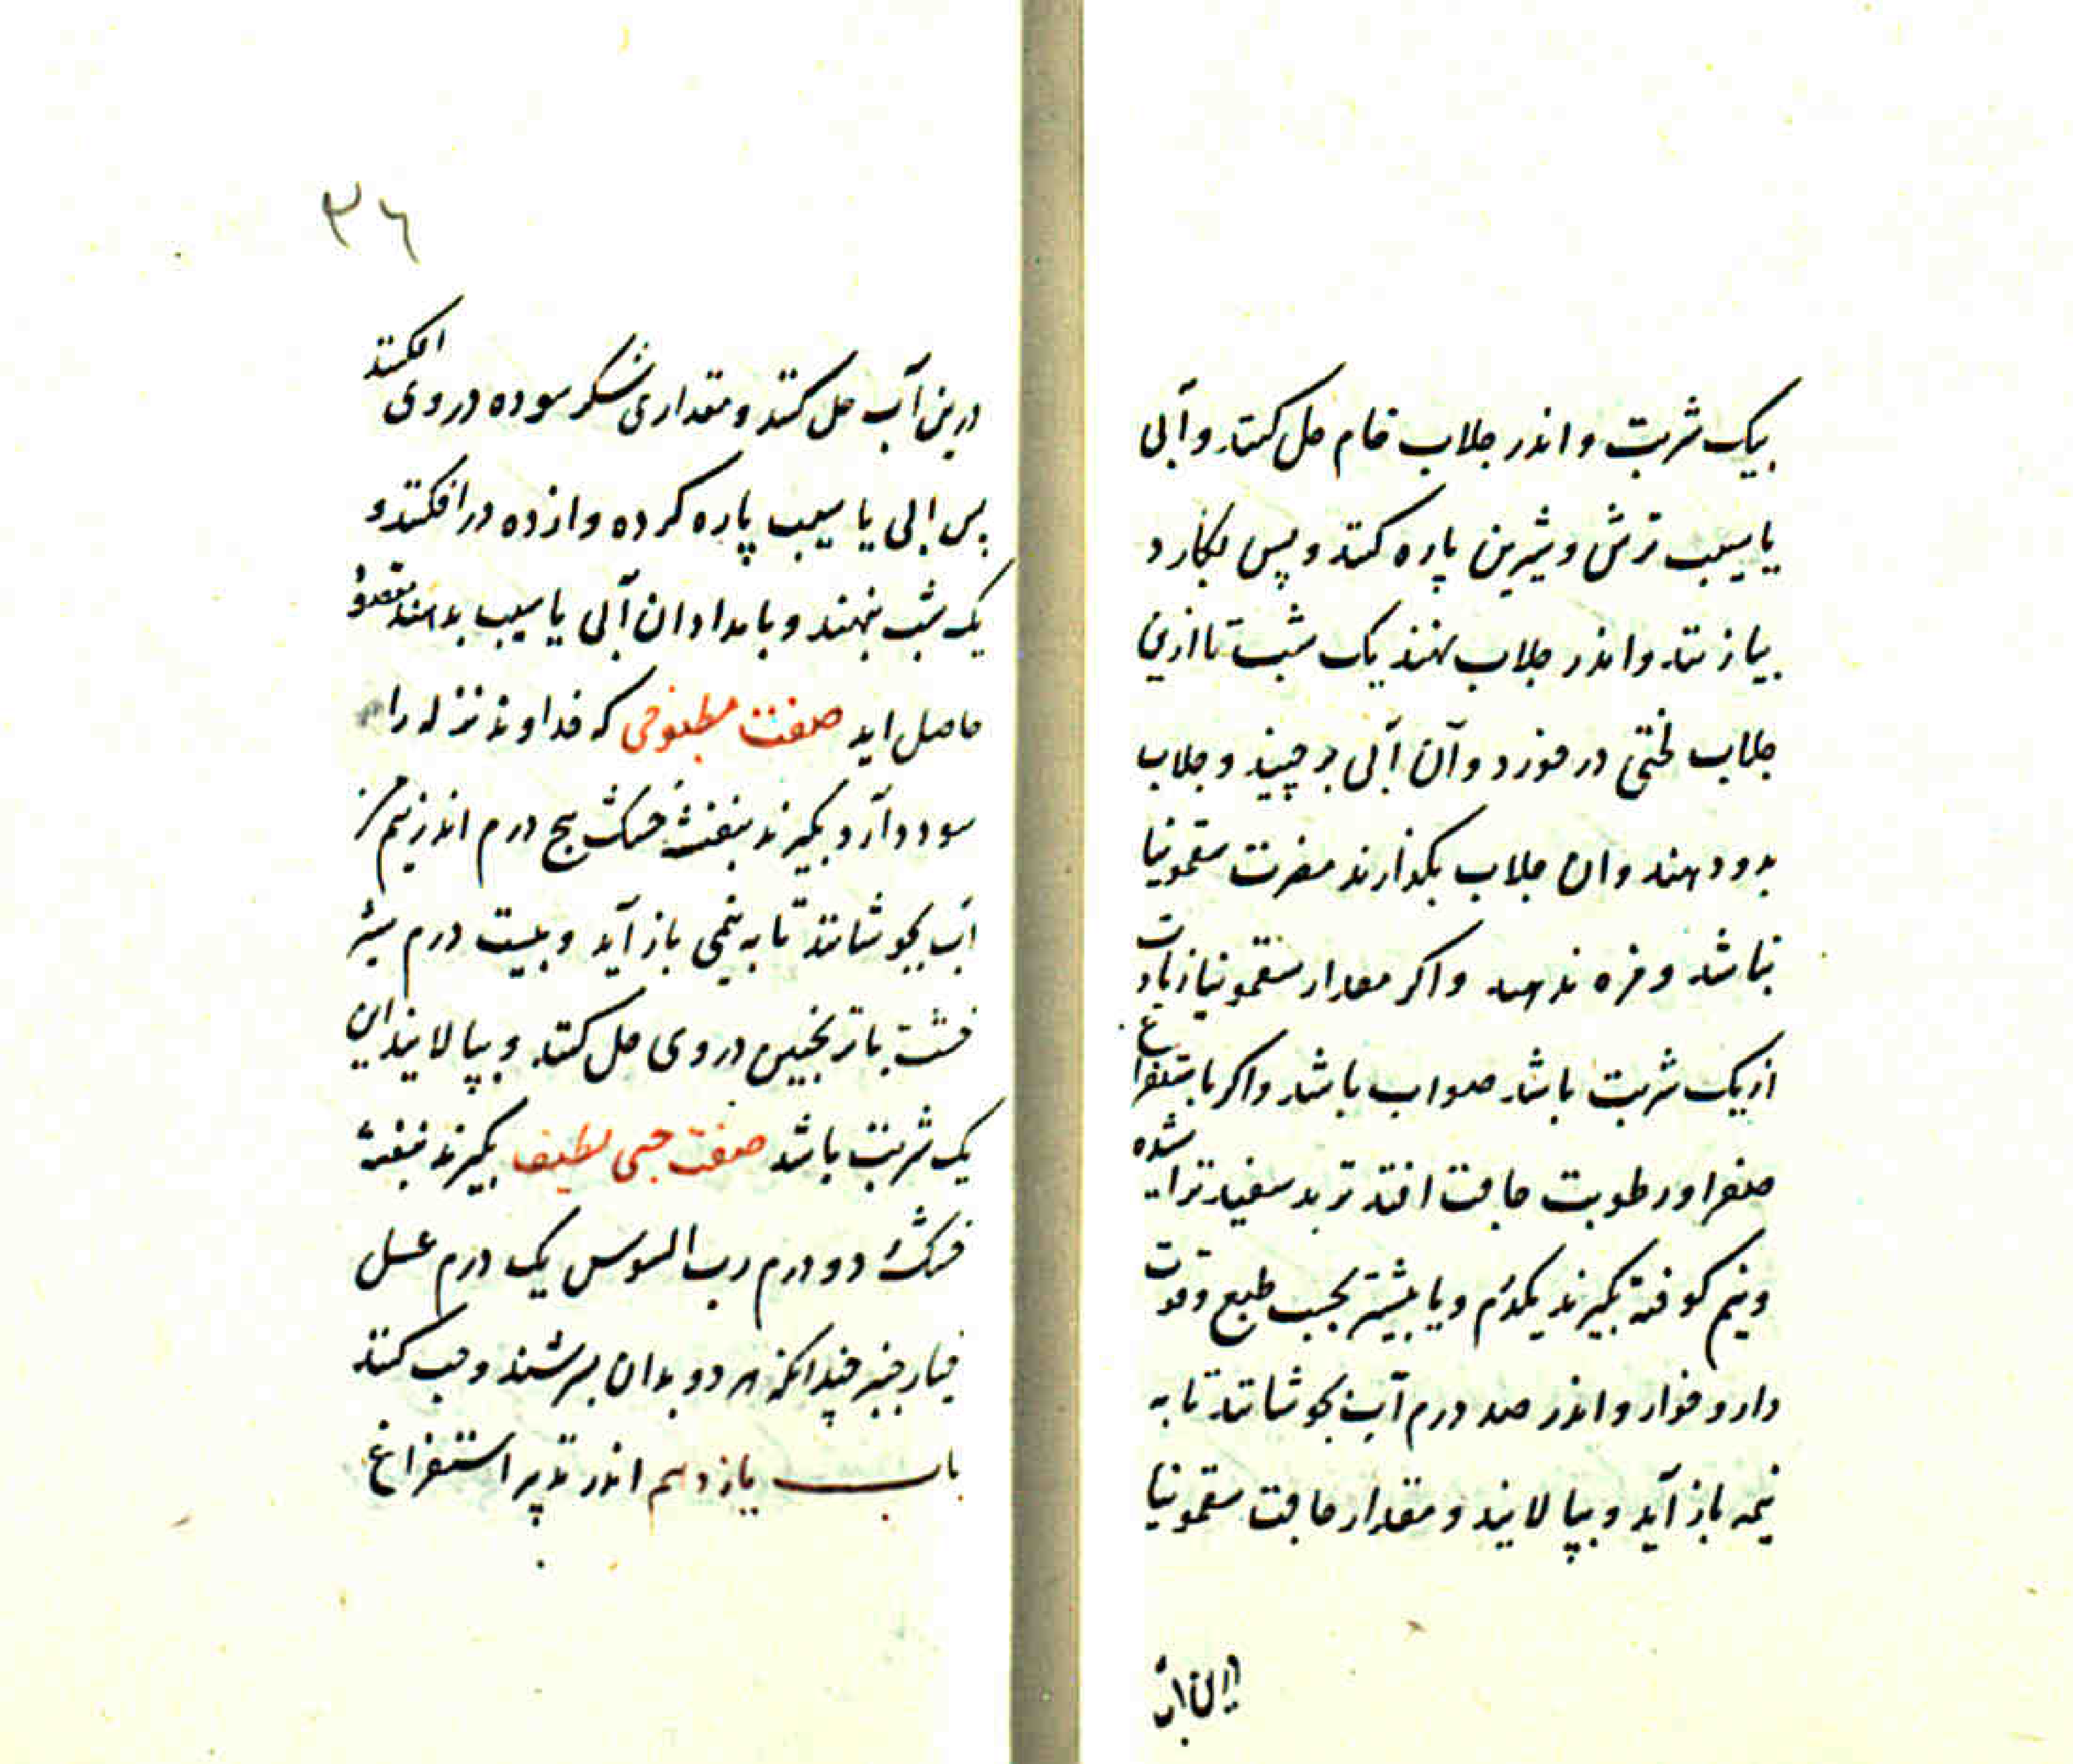 بیک شربت و اندر جلاب خام حل کنند و آبی
یا سیب ترش و شیرین پاره کنند و پس بکارد
بیازنند و اندر جلاب نهند یک شب تا ازین
جلاب لختی در خورد و آن آبی برچیند و جلاب
بدو دهند وان جلاب بگذارند مضرت سقمونیا
نباشد و مزه ندهد واکر مقدار سقمونیا زیادت
از یک شربت باشد صواب باشد واکر باستفراغ
صفرا و رطوبت حاجت افتد تربد سفید تراشیده
و نیم کوفته بگیرند یکدرم و یا بیشتر بحسب طبع و قوت
دارو خوار و اندر صد درم آب بجوشانند تا به
نیمه باز آید و بپالایند و مقدار حاجت سقمونیا
درین آب
۳۶
درین آب حل کنند و مقداری شکر سوده در وی افکنند
پس ابی یا سیب پاره کرده و ازده در افکنند و
یک شب بنهند و بامدادان آبی یا سیب بدهند مقصود
حاصل اید صفت مطبوخی که خداوند نزله را
سود دارد بگیرند بنفشه خشک پنج درم اندر نیم من
آب بجوشانند تا به نیمی باز آید و بیست درم شیر
خشت با ترنجبین در وی حل کنند و بپالایند این
یک شربت باشد صفت حبی لطیف بگیرند بنفشه
خشک دو درم رب السوس یک درم عسل
خیار چنبر چندانکه هر دو بدان بسرشند و حب کنند
باب یازدهم اندر تدبیر استفراغ